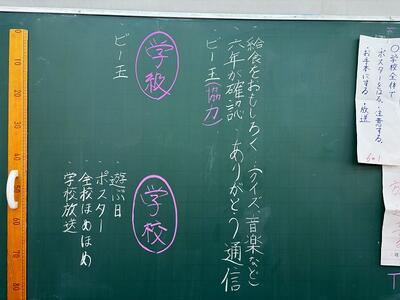 〇学校全体で
ポスターをはる、注意する、
お手本にする ・放送
6の1
・給食をおもしろく ・クイズ、音楽など
・六年が確認 ・ありがとう通信
・ビー玉(協力)
学級
・ビー玉
学校
・遊ぶ日
・ポスター
・全校ほめほめ
・学校放送
10
20
30
40
50
60
70
80